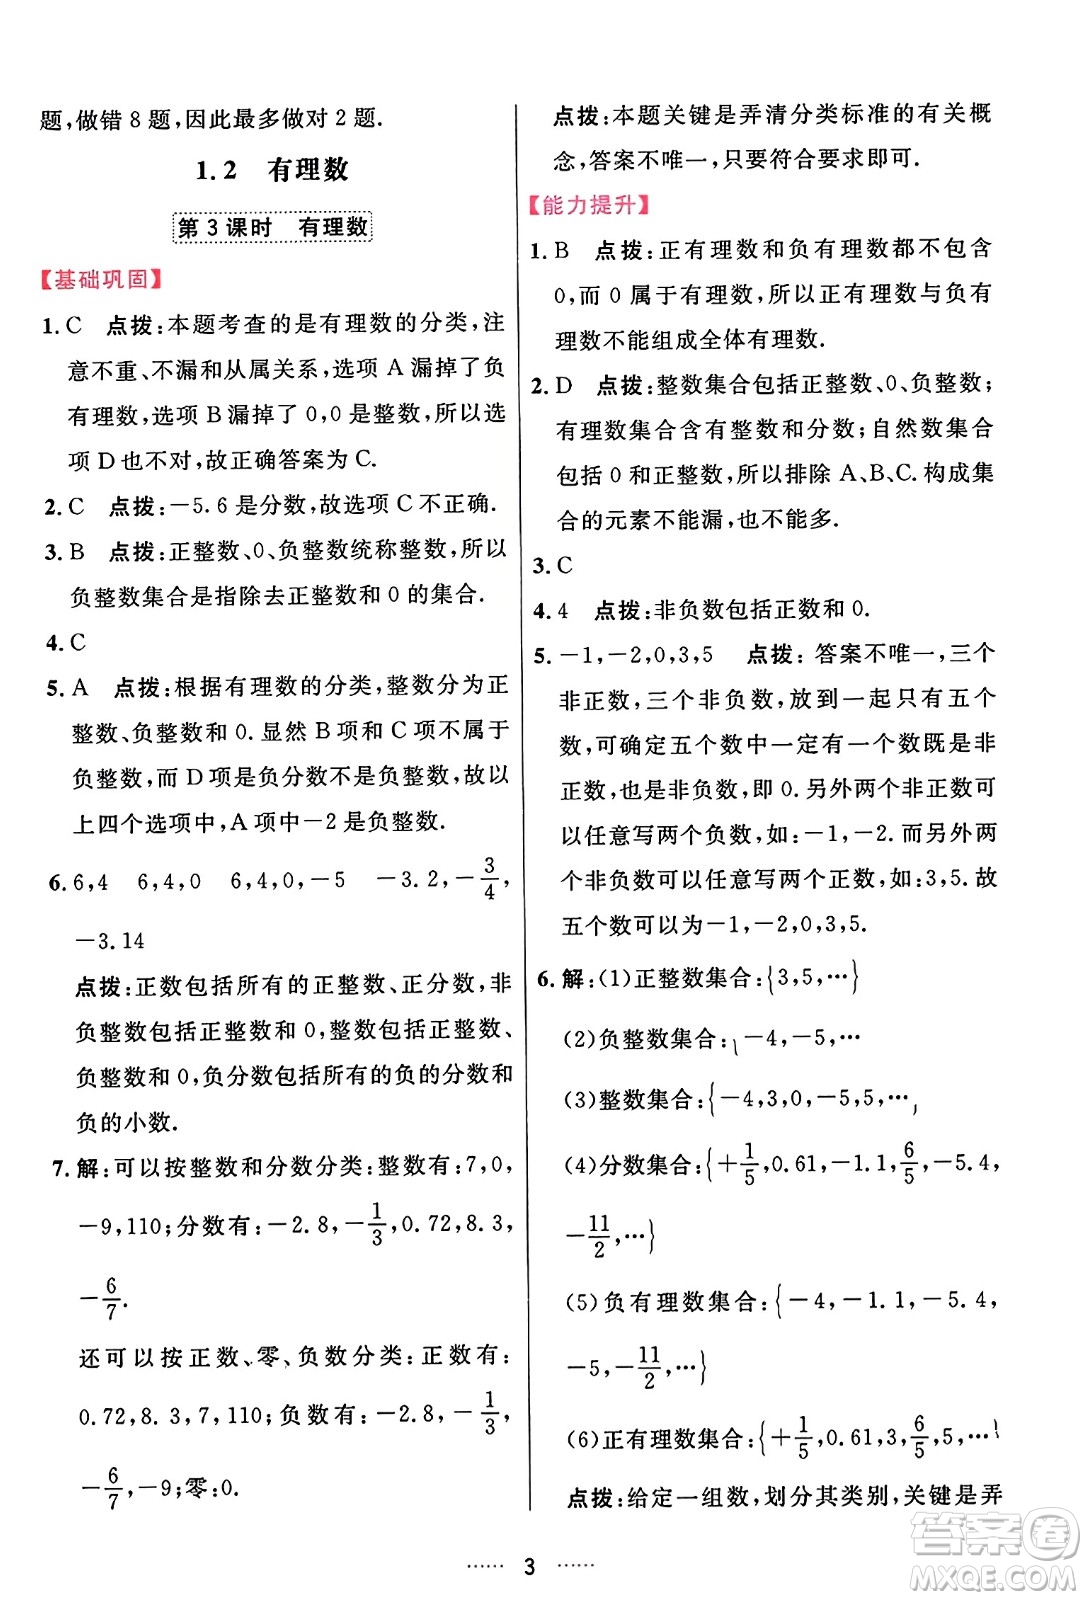 题,做错8题,因此最多做对2题.
1.2 有理数
第3课时 有理数
【基础巩固】
1.C 点拨:本题考查的是有理数的分类,注
意不重、不漏和从属关系,选项A漏掉了负
有理数,选项B漏掉了0,0是整数,所以选
项D也不对,故正确答案为C.
2.C 点拨:-5.6是分数,故选项C不正确.
3.B 点拨:正整数、0、负整数统称整数,所以
负整数集合是指除去正整数和0的集合.
4.C
5.A 点拨:根据有理数的分类,整数分为正
整数、负整数和0.显然B项和C项不属于
负整数,而D项是负分数不是负整数,所以
上四个选项中,A项中-2是负整数.
6.6,4 6,4,0 6,4,0,-5 -3.2,-3/4,
-3.14
点拨:正数包括所有的正整数、正分数,非
负整数包括正整数和0,整数包括正整数、
负整数和0,负分数包括所有的负的分数和
负的小数.
7.解:可以按整数和分数分类:整数有:7,0,
-9,110;分数有:-2.8,-1/3,0.72,8.3,
-6/7.
还可以按正数、零、负数分类:正数有:
0.72,8.3,7,110;负数有:-2.8,-1/3,
-6/7,-9;零:0.
点拨:本题关键是弄清分类标准的有关概
念,答案不唯一,只要符合要求即可.
【能力提升】
1.B 点拨:正有理数和负有理数都不包含
0,而0属于有理数,所以正有理数与负有
理数不能组成全体有理数.
2.D 点拨:整数集合包括正整数、0、负整数;
有理数集合含有整数和分数;自然数集合
包括0和正整数,所以排除A、B、C.构成集
合的元素不能漏,也不能多.
3.C
4.4 点拨:非负数包括正数和0.
5.-1,-2,0,3,5 点拨:答案不唯一,三个
非正数,三个非负数,放到一起只有五个
数,可确定五个数中一定有一个数既是非
正数,也是非负数,即0.另外两个非正数可
以任意写两个负数,如:-1,-2.而另外两
个非负数可以任意写两个正数,如:3,5.故
五个数可以为-1,-2,0,3,5.
6.解:(1)正整数集合:{3,5,…}
(2)负整数集合:{-4,-5,…
(3)整数集合:{-4,3,0,-5,5,…}
(4)分数集合:{+1/5,0.61,-1.1,6/5,-5.4,
-11/2,…}
(5)负有理数集合:{-4,-1.1,-5.4,
-5,-11/2,…}
(6)正有理数集合:{+1/5,0.61,3,6/5,5,…}
点拨:给定一组数,划分其类别,关键是弄
…… 3 ……
答案卷
MXQE.COM